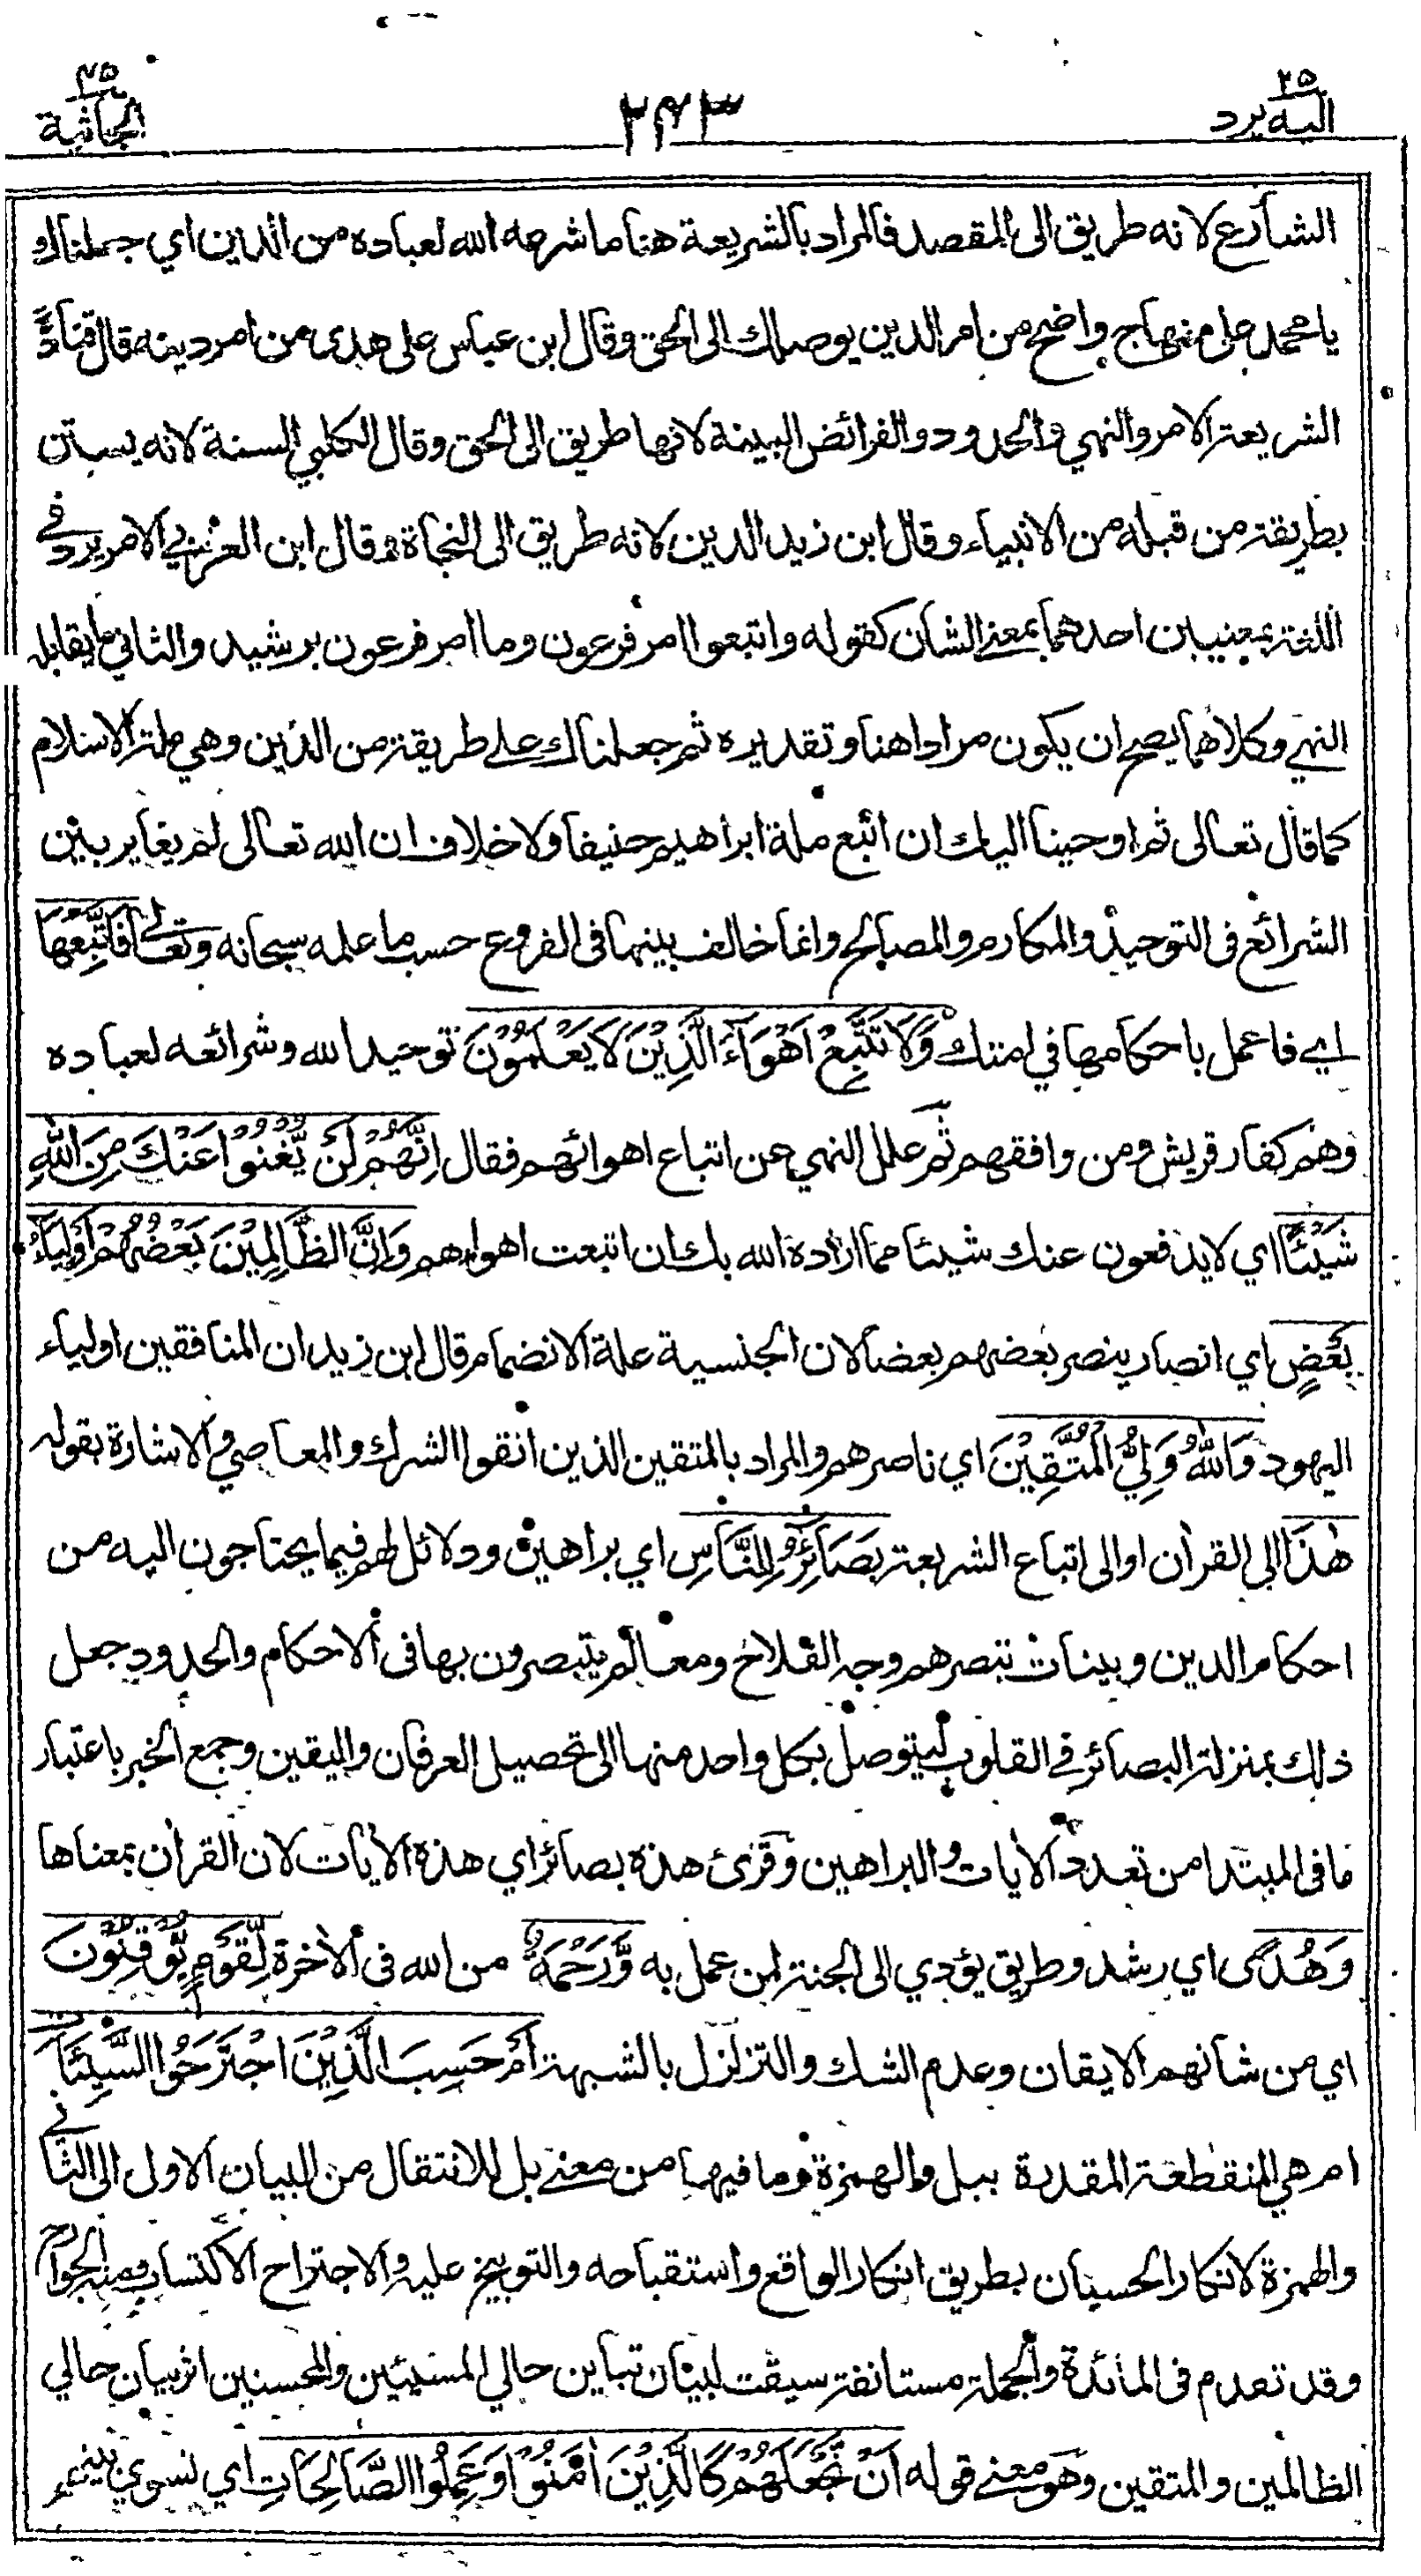 ٢٥
اليه يرد
٢٤٣
٤٥
الجاثية
الشارع لانه طريق الى المقصد فالمراد بالشريعة هنا ما شرعه الله لعباده من الدين اي جعلناك
يا محمد على منهاج واضح من امر الدين يوصلك الى الحق وقال ابن عباس على هدى من امر دينه قال قتادة
الشريعة الامر والنهي والحدود والفرائض البينة لانها طريق الى الحق وقال الكلبي السنة لانه يستن
بطريقة من قبله من الانبياء وقال ابن زيد الدين لانه طريق الى النجاة وقال ابن العربي الامر يرد في
اللغة بمعنيين احدهما بمعنى الشأن كقوله واتبعوا امر فرعون وما امر فرعون برشيد والثاني ما يقابله
النهي وكلاهما يصح ان يكون مرادا هنا وتقديره ثم جعلناك على طريقة من الدين وهي ملة الاسلام
كما قال تعالى ثم اوحينا اليك ان اتبع ملة ابراهيم حنيفا ولا خلاف ان الله تعالى لم يغاير بين
الشرائع فى التوحيد والمكارم والمصالح وانما خالف بينها فى الفروع حسب ما علمه سبحانه وتعالى فَاتَّبِعْهَا
اي فاعمل باحكامها في امتك وَلَا تَتَّبِعْ اَهْوَآءَ الَّذِيْنَ لَا يَعْلَمُوْنَ توحيد الله وشرائعه لعباده
وهم كفار قريش ومن وافقهم ثم علل النهي عن اتباع اهوائهم فقال اِنَّهُمْ لَنْ يُّغْنُوْا عَنْكَ مِنَ اللّٰهِ
شَيْئًا اي لا يدفعون عنك شيئا مما اراده الله بك ان اتبعت اهواءهم وَاِنَّ الظَّالِمِيْنَ بَعْضُهُمْ اَوْلِيَآءُ
بَعْضٍ اي انصار ينصر بعضهم بعضا لان الجنسية علة الانضمام قال ابن زيد ان المنافقين اولياء
اليهود وَاللّٰهُ وَلِيُّ الْمُتَّقِيْنَ اي ناصرهم والمراد بالمتقين الذين اتقوا الشرك والمعاصي والاشارة بقوله
هٰذَا الى القرآن او الى اتباع الشريعة بَصَآئِرُ لِلنَّاسِ اي براهين ودلائل لهم فيما يحتاجون اليه من
احكام الدين وبينات تبصرهم وجه الفلاح ومعالم يتبصرون بها فى الاحكام والحدود جعل
ذلك بمنزلة البصائر في القلوب ليتوصل بكل واحد منها الى تحصيل العرفان واليقين وجمع الخبر باعتبار
ما فى المبتدا من تعدد الآيات والبراهين وقرئ هذه بصائر اي هذه الآيات لان القرآن بمعناها
وَهُدًى اي رشد وطريق يؤدي الى الجنة لمن عمل به وَّرَحْمَةٌ من الله فى الآخرة لِّقَوْمٍ يُّوْقِنُوْنَ
اي من شأنهم الايقان وعدم الشك والتزلزل بالشبهة اَمْ حَسِبَ الَّذِيْنَ اجْتَرَحُوا السَّيِّئَاتِ
ام هي المنقطعة المقدرة ببل والهمزة وما فيها من معنى بل للانتقال من البيان الاول الى الثاني
والهمزة لانكار الحسبان بطريق انكار الواقع واستقباحه والتوبيخ عليه والاجتراح الاكتساب ومنه الجوارح
وقد تقدم فى المائدة والجملة مستانفة سيقت لبيان تباين حالي المسيئين والمحسنين اثر بيان حالي
الظالمين والمتقين وهو معنى قوله اَنْ نَّجْعَلَهُمْ كَالَّذِيْنَ اٰمَنُوْا وَعَمِلُوا الصَّالِحَاتِ اي نسوي بينهم